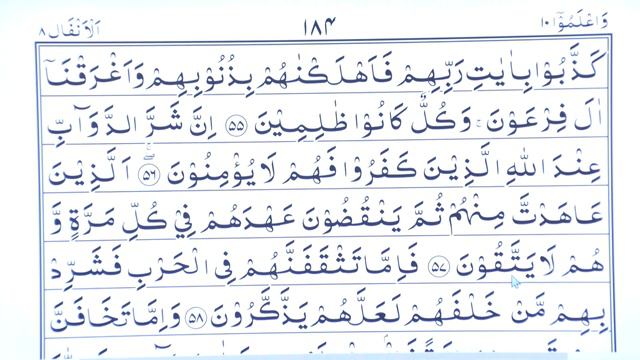 وَاعْلَمُوْٓا ١٠ ١٨٤ اَلْاَنْفَال ٨
كَذَّبُوْا بِاٰيٰتِ رَبِّهِمْ فَاَهْلَكْنٰهُمْ بِذُنُوْبِهِمْ وَاَغْرَقْنَآ
اٰلَ فِرْعَوْنَ ۚ وَكُلٌّ كَانُوْا ظٰلِمِيْنَ ﴿۵۵﴾ اِنَّ شَرَّ الدَّوَآبِّ
عِنْدَ اللهِ الَّذِيْنَ كَفَرُوْا فَهُمْ لَا يُؤْمِنُوْنَ ﴿۵۶﴾ اَلَّذِيْنَ
عَاهَدْتَّ مِنْهُمْ ثُمَّ يَنْقُضُوْنَ عَهْدَهُمْ فِيْ كُلِّ مَرَّةٍ وَّ
هُمْ لَا يَتَّقُوْنَ ﴿۵۷﴾ فَاِمَّا تَثْقَفَنَّهُمْ فِى الْحَرْبِ فَشَرِّدْ
بِهِمْ مَّنْ خَلْفَهُمْ لَعَلَّهُمْ يَذَّكَّرُوْنَ ﴿۵۸﴾ وَاِمَّا تَخَافَنَّ